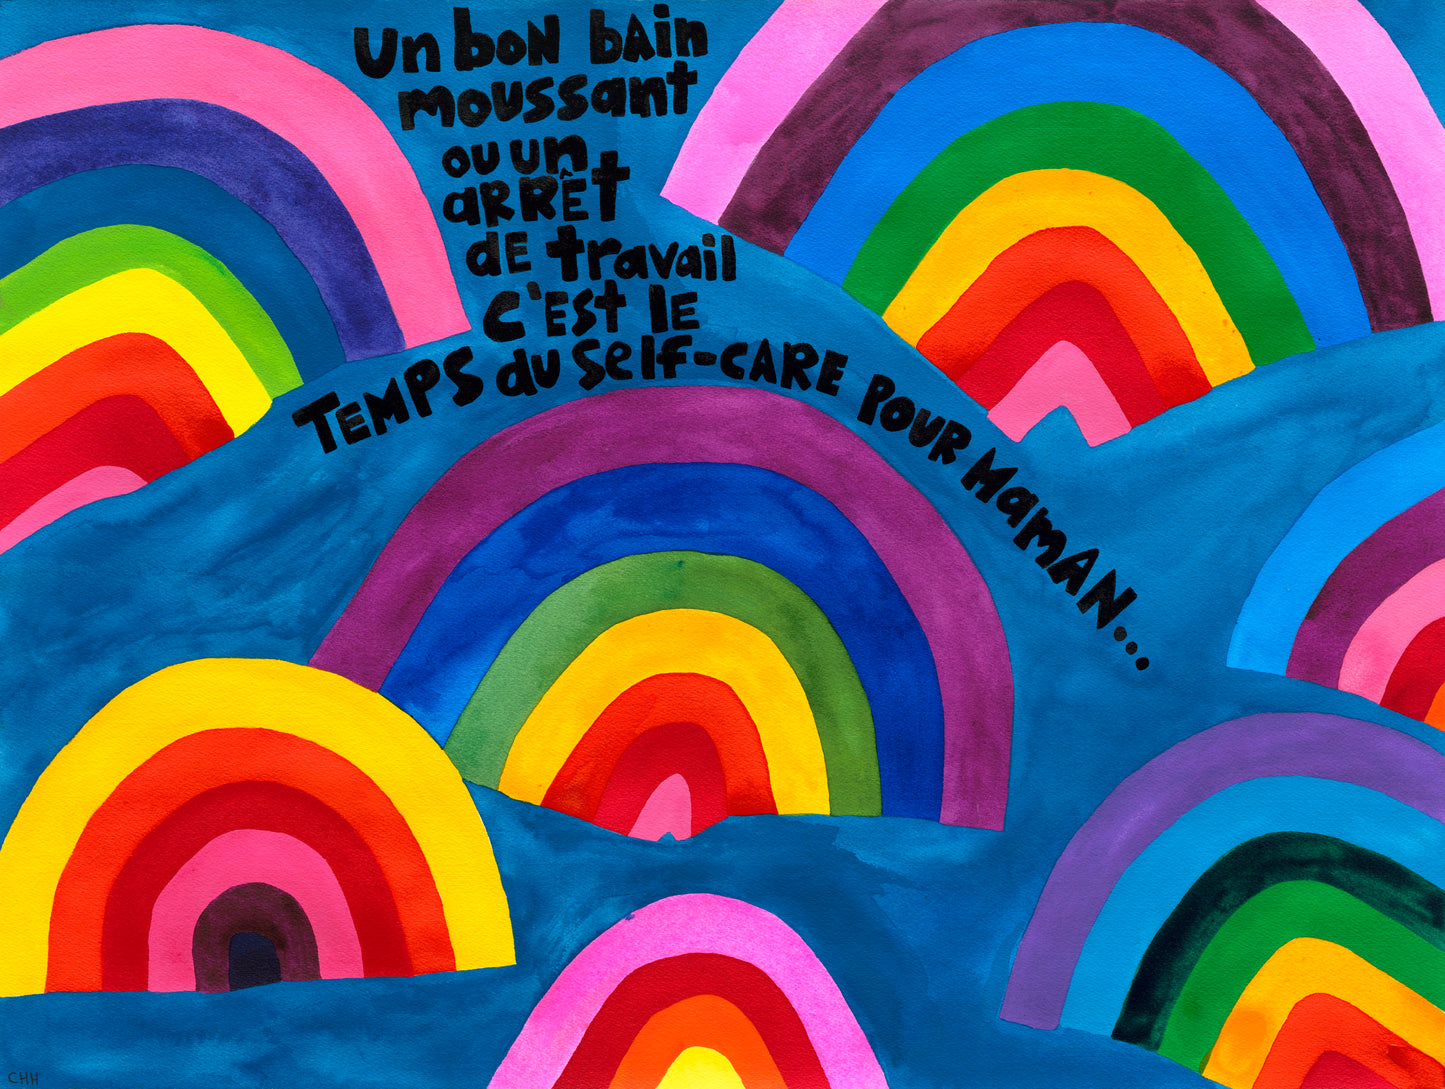 Un bon bain
moussant
ou un
arrêt
de travail
c'est le
temps du self-care pour maman...
CHH